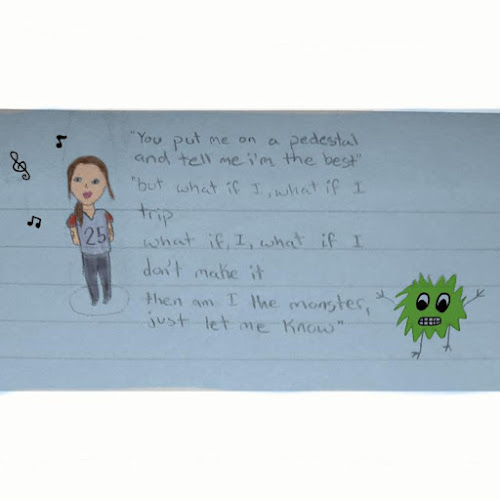 "You put me on a pedestal
and tell me i'm the best"
"but what if I, what if I
trip
what if, I, what if I
don't make it
then am I the monster,
just let me know"
25